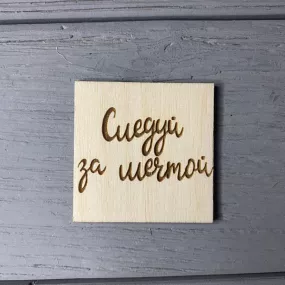 Следуй
за мечтой